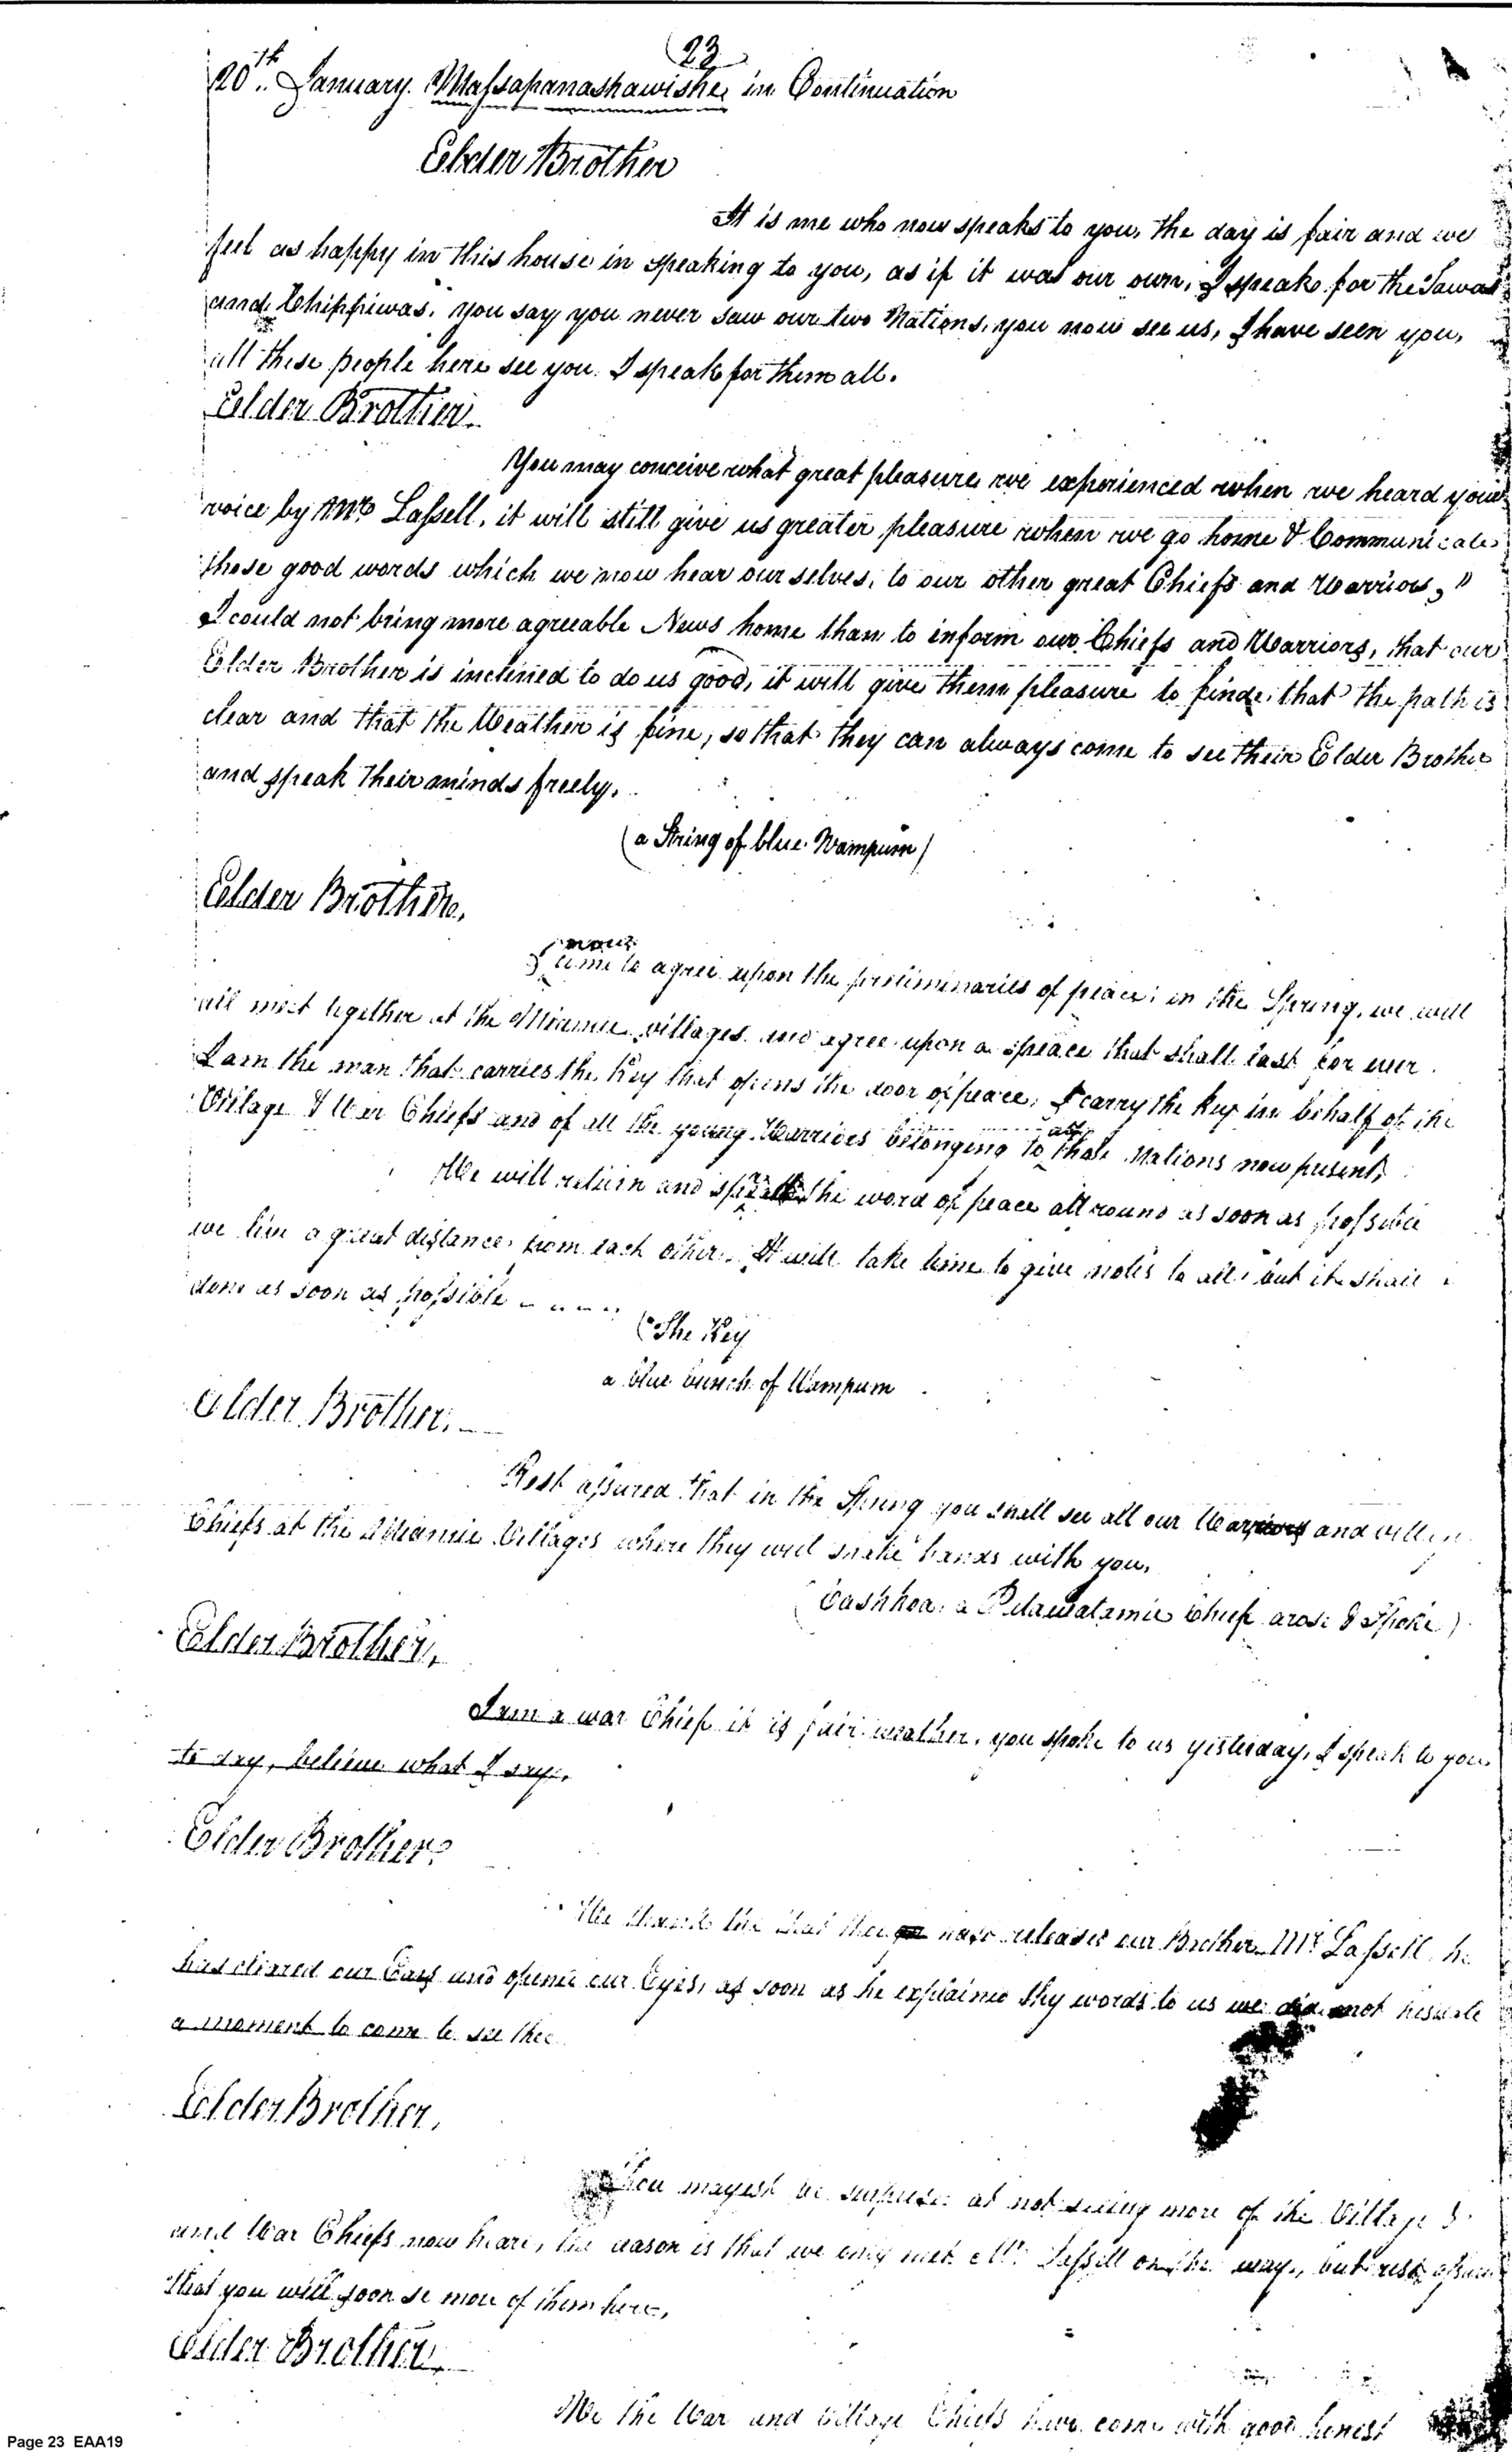 (23)
20th. January. Massapanashawishe, in Continuation
Elder Brother
It is me who now speaks to you, the day is fair and we
feel as happy in this house in speaking to you, as if it was our own, I speak for the Tawas
and Chippiwas, you say you never saw our two Nations, you now see us, I have seen you,
all these people here see you. I speak for them all.
Elder Brother.
You may conceive what great pleasure we experienced when we heard your
voice by Mr. Lassell, it will still give us greater pleasure when we go home & Communicate
those good words which we now hear ourselves, to our other great Chiefs and Warriors,"
I could not bring more agreeable News home than to inform our Chiefs and Warriors, that our
Elder Brother is inclined to do us good, it will give them pleasure to finde that the path is
clear and that the Weather is fine, so that they can always come to see their Elder Brother
and speak their minds freely.
(a String of blue Wampum)
Elder Brother,
now
I come to agree upon the preliminaries of peace; in the Spring, we will
all meet together at the Miamie villages and agree upon a peace that shall last for ever.
I am the man that carries the Key that opens the door of peace, I carry the key in behalf of the
Village & War Chiefs and of all the young Warriors belonging to all those Nations now present,
We will return and spread the word of peace all round as soon as possible
we live a great distance from each other. It will take time to give notis to all, but it shall
done as soon as possible
(The Key
a blue bunch of Wampum
Elder Brother,
Rest assured that in the Spring you shall see all our Warriors and
Chiefs at the Miamie Villages where they will shake hands with you.
(Cashkoa, a Putawatamie Chief arose & Spoke)
Elder Brother,
I am a war Chief it is fair weather, you spoke to us yisterday, I speak to you
to day, believe what I say,
Elder Brother
We thank the that thou have released our Brother Mr. Lassell, he
has cleared our Ears and opened our Eyes, as soon as he explained thy words to us we did not hesitate
a moment to come to see thee
Elder Brother,
Thou mayest be surprised at not seeing more of the Village &
and War Chiefs now heare, the reason is that we only met Mr. Lassell on the way, but rest assured
that you will soon se more of them here,
Elder Brother,
We the War and Village Chiefs have come with good honest
Page 23 EAA19